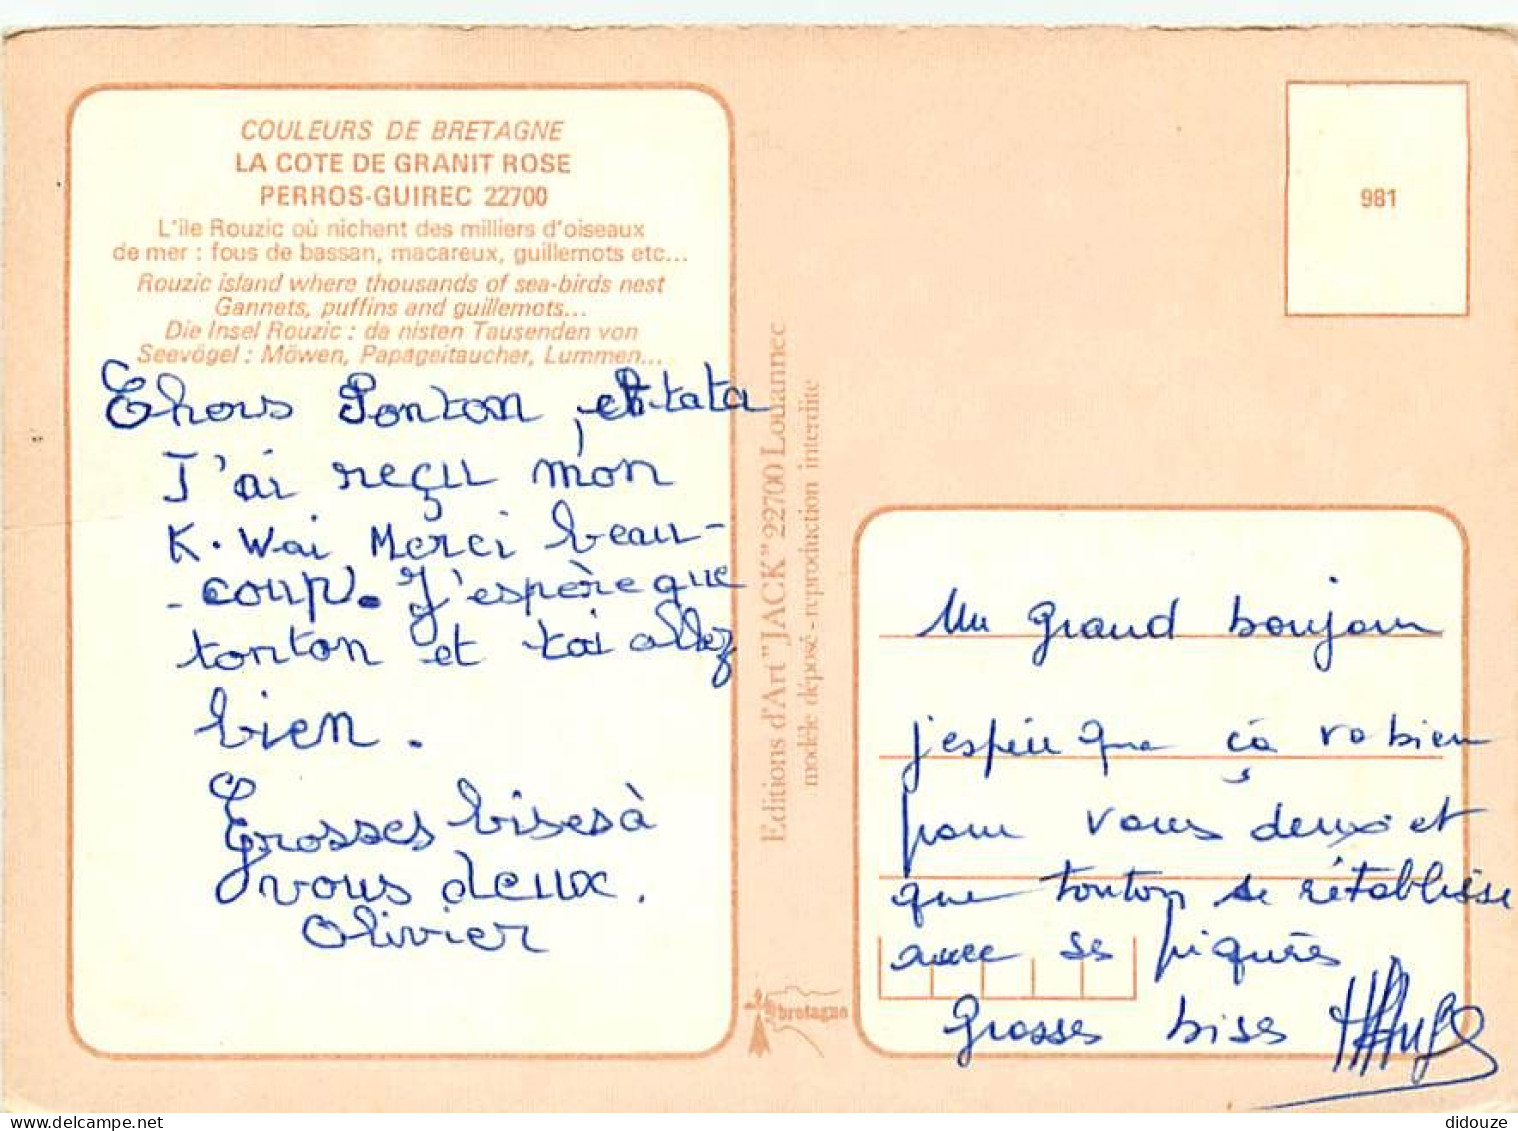 COULEURS DE BRETAGNE
LA COTE DE GRANIT ROSE
PERROS-GUIREC 22700
L'ile Rouzic où nichent des milliers d'oiseaux
de mer : fous de bassan, macareux, guillemots etc...
Rouzic island where thousands of sea-birds nest
Gannets, puffins and guillemots...
Die Insel Rouzic : da nisten Tausenden von
Seevögel : Möwen, Papageitaucher, Lummen...
Chers Tonton, et tata
J'ai reçu mon
K. Wai Merci beau-
-coup. J'espère que
tonton et toi allez
bien.
Grosses bises à
vous deux.
Olivier
Editions d'Art "JACK" 22700 Louannec
modèle déposé - reproduction interdite
bretagne
981
Un grand bonjour
j'espère que ça va bien
pour vous deux et
que tonton se rétablisse
avec se piqures
Grosses bises
didouze